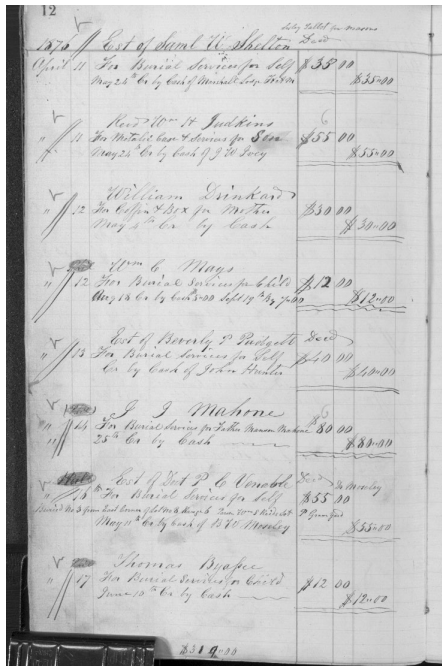 12
1876 Est of Saml W Shelton Decd
April 11 For Burial Services for Self $35 00
May 24th Cr by Cash of $35=00
Revd Wm H Judkins
" 11 For Metalic Case & Services for Son $55 00
May 24th Cr by Cash of J W Ivey $55=00
William Drinkard
" 12 For Coffin & Box for Mother $30 00
May 4th Cr by Cash $30=00
Wm C Mays
" 12 For Burial Services for Child $12 00
Aug 18 Cr by Cash 5=00 Sept 19th By 7=00 $12=00
Est of Beverly P Padgett Decd
" 13 For Burial Services for Self $40 00
Cr by Cash of John Hunter $40=00
J J Mahone
" 14 For Burial Service for Father Mahone $80 00
25th Cr by Cash $80=00
Est of P C Venable Decd
" For Burial Services for Self $55 00
Buried No 3 from
May 11th Cr by Cash of Mosley $55=00
Thomas
" 17 For Burial Services for Child $12 00
June 10th Cr by Cash $12=00
$319=00